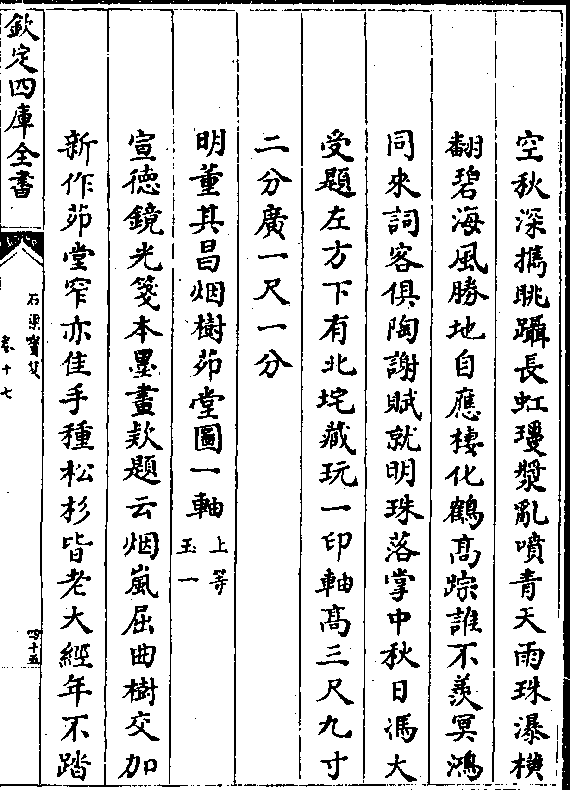 空秋深擕眺躡長虹瓊漿亂噴青天雨珠瀑橫
翻碧海風勝地自應棲化鶴髙踪誰不羨冥鴻
同來詞客俱陶謝賦就明珠落掌中秋日馮大
受題左方下有北垞藏玩一印軸髙三尺九寸
二分廣一尺一分
明董其昌烟樹茆堂圖一軸 上等
玉一
宣德鏡光箋本墨畫欵題云烟嵐屈曲樹交加
新作茆堂窄亦佳手種松杉皆老大經年不踏
欽定四庫全書
石渠寶笈
卷十七
四十五